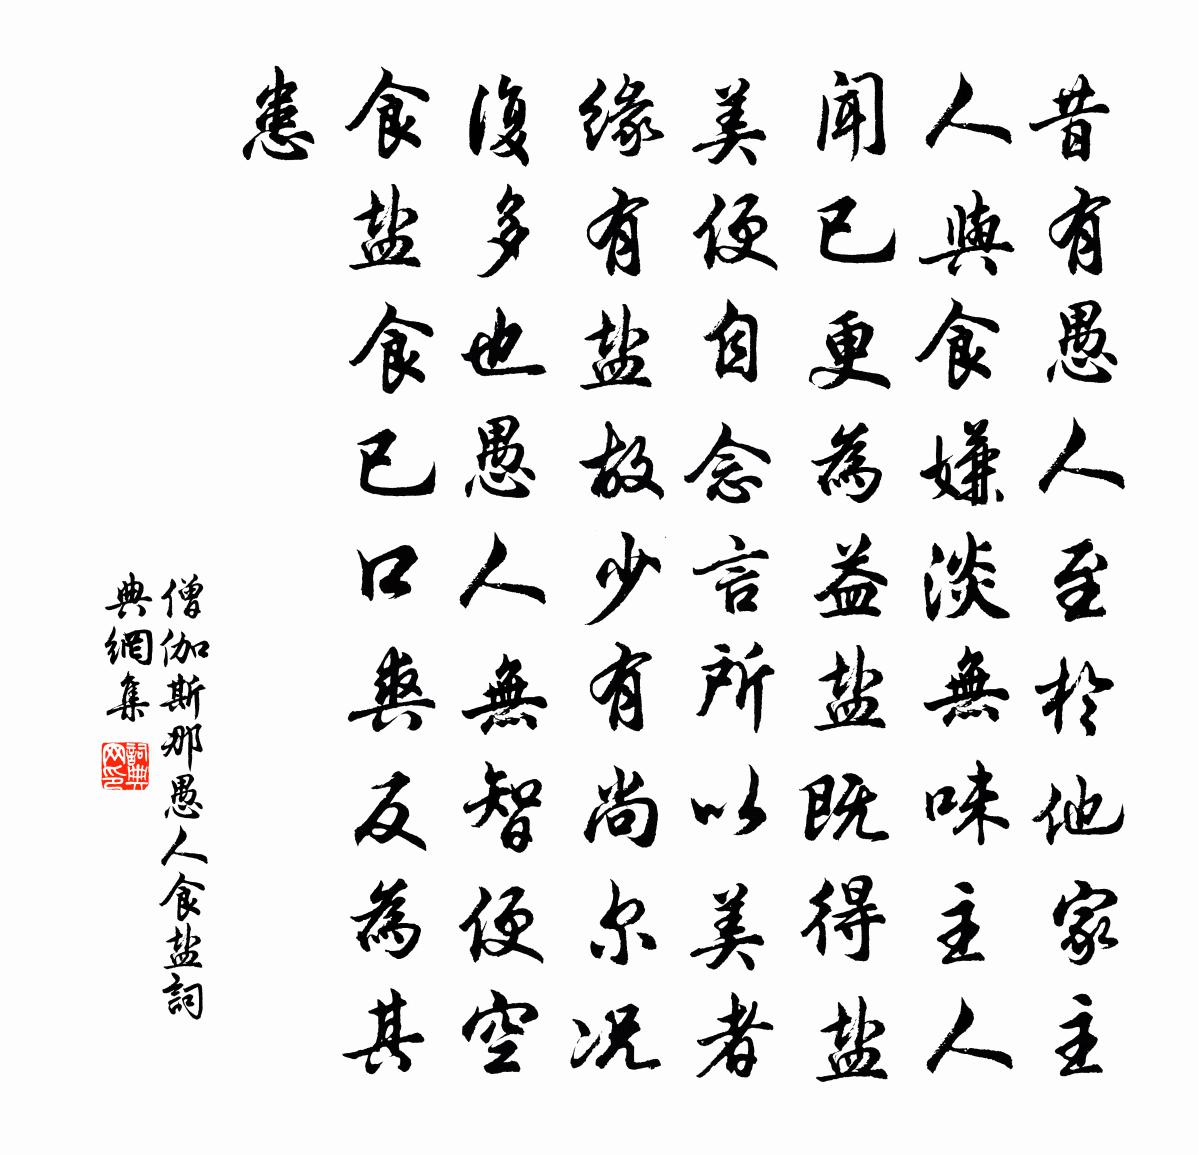 昔有愚人至於他家主
人與食嫌淡無味主人
闻已更為益盐既得盐
美便自念言所以美者
缘有盐故少有尚尔况
復多也愚人無智便空
食盐食已口爽反為其
患
僧伽斯那愚人食盐詞
典網集
詞典网印